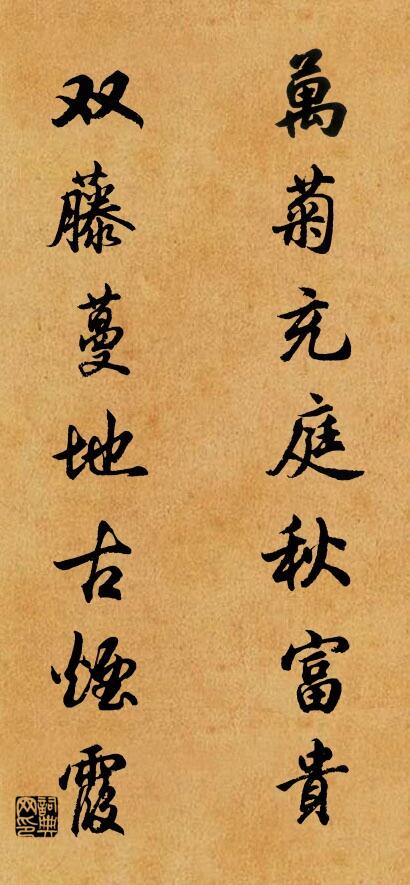 萬菊充庭秋富貴
双藤蔓地古煙霞
詞典網印